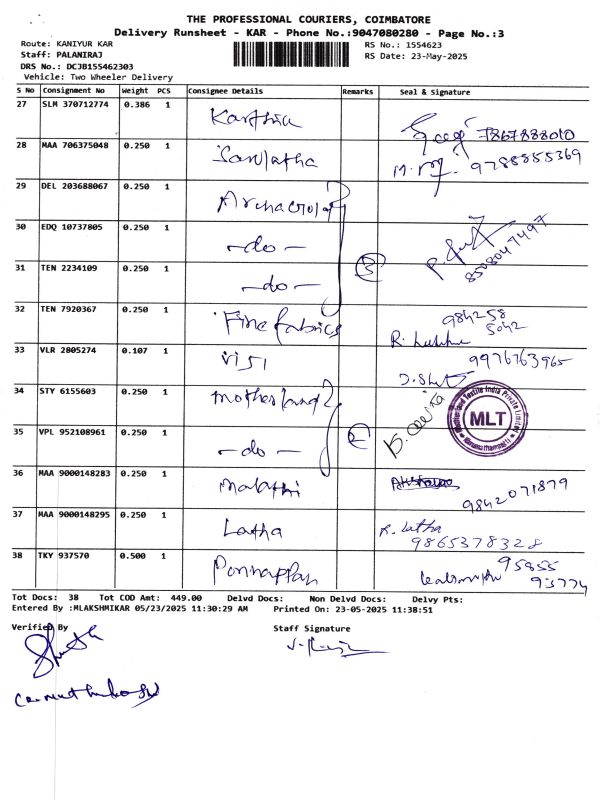 THE PROFESSIONAL COURIERS, COIMBATORE
Delivery Runsheet - KAR - Phone No.:9047080280 - Page No.:3
Route: KANIYUR KAR
RS No.: 1554623
Staff: PALANIRAJ
RS Date: 23-May-2025
DRS No.: DCJB155462303
Vehicle: Two Wheeler Delivery
S No Consignment No Weight PCS Consignee Details Remarks Seal & Signature
27 SLM 370712774 0.386 1 Karthik 7867888010
28 MAA 706375048 0.250 1 9788855369
29 DEL 203688067 0.250 1
30 EDQ 10737805 0.250 1 -do- 8508047497
31 TEN 2234109 0.250 1 -do- 3
32 TEN 7920367 0.250 1 Fine fabrics 984258 5042
33 VLR 2805274 0.107 1 9976763965
34 STY 6155603 0.250 1 motherland
MLT
35 VPL 952108961 0.250 1 -do- 2
36 MAA 9000148283 0.250 1 malathi 9842071879
37 MAA 9000148295 0.250 1 Latha R. Latha 9865378328
38 TKY 937570 0.500 1 Ponnappan 95955 93774
Tot Docs: 38 Tot COD Amt: 449.00 Delvd Docs: Non Delvd Docs: Delvy Pts:
Entered By :MLAKSHMIKAR 05/23/2025 11:30:29 AM Printed On: 23-05-2025 11:38:51
Verified By Staff Signature